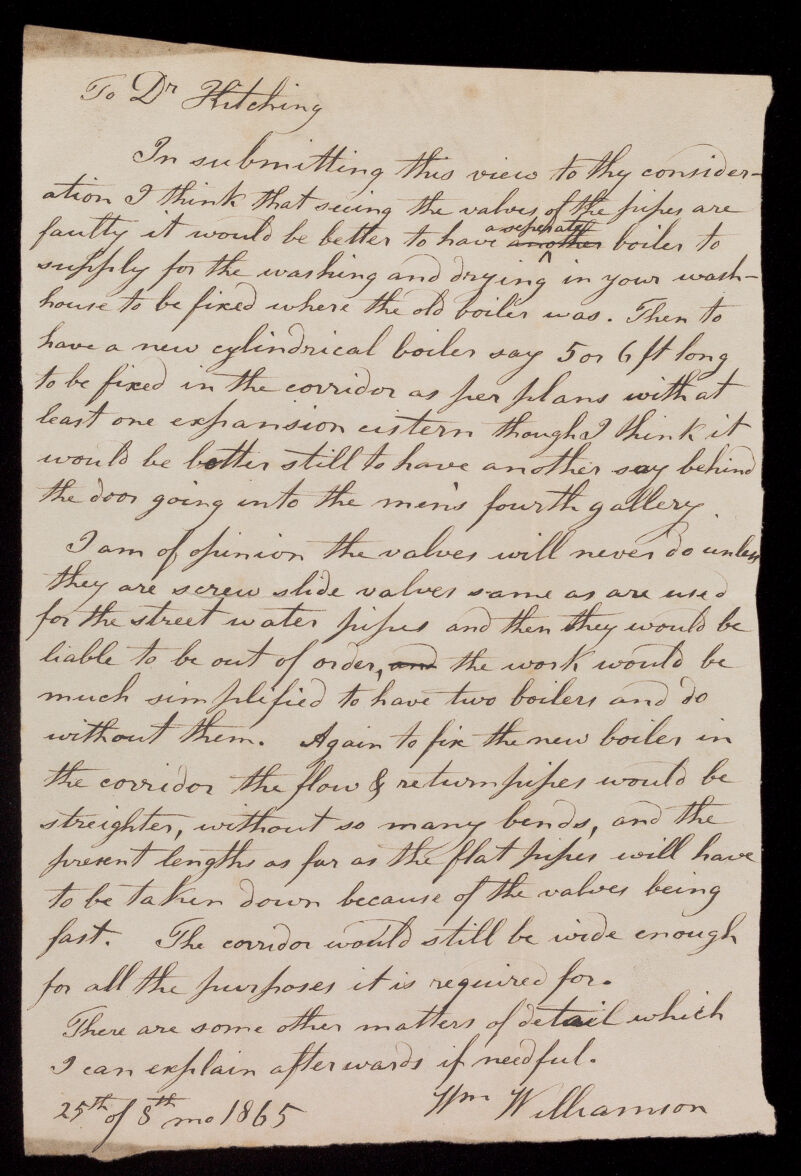 To Dr Kitching
In submitting this view to thy consider-
ation I think that seeing the valves of the pipes are
faulty it would be better to have a seperate another boiler to
supply for the washing and drying in your wash-
house to be fixed where the old boiler was. Then to
have a new cylindrical boiler say 5 or 6 ft long
to be fixed in the corridor as per plans with at
least one expansion cistern though I think it
would be better still to have another say behind
the door going into the men's fourth gallery
I am of opinion the valves will never do unless
they are screw slide valves same as are used
for the street water pipes and then they would be
liable to be out of order, and the work would be
much simplified to have two boilers and do
without them. Again to fix the new boiler in
the corridor the flow & return pipes would be
streighter, without so many bends, and the
present lengths as far as the flat pipes will have
to be taken down because of the valves being
fast. The corridor would still be wide enough
for all the purposes it is required for.
There are some other matters of detail which
I can explain afterwards if needful.
25th of 8th mo 1865 Wm Williamson